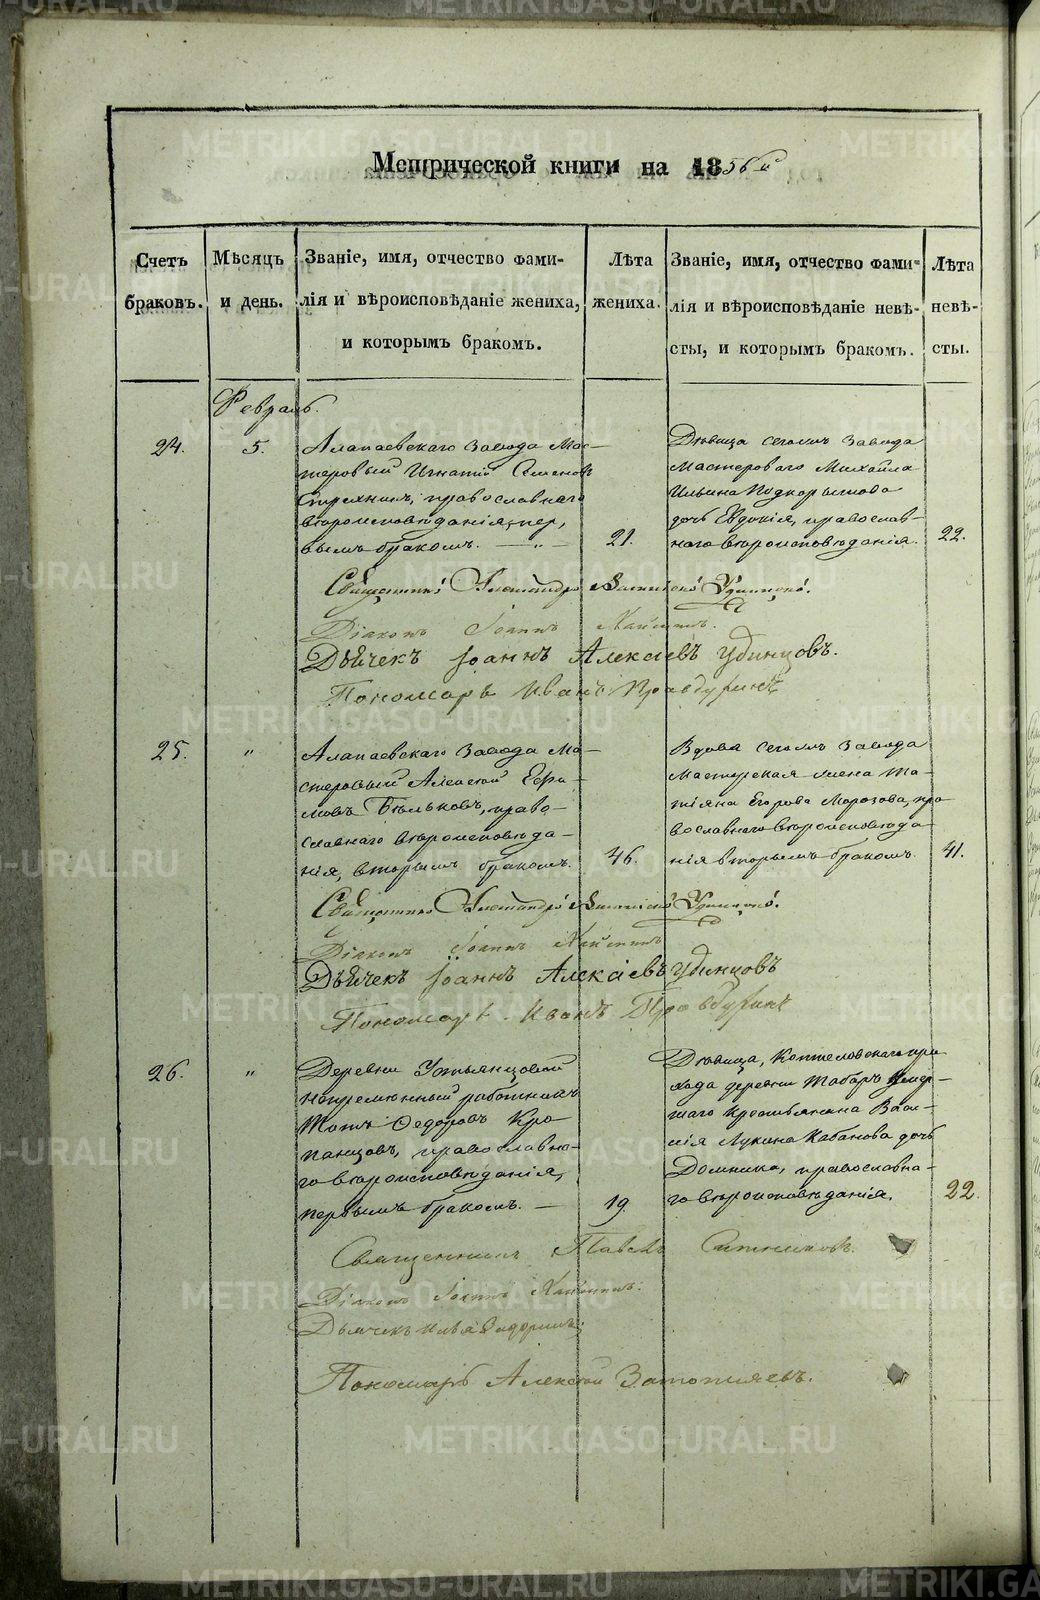 METRIKI.GASO-URAL.RU
Метрической книги на 1856й
Счетъ браковъ.
Мѣсяцъ и день.
Званіе, имя, отчество фами-
лія и вѣроисповѣданіе жениха,
и которымъ бракомъ.
Лѣта жениха.
Званіе, имя, отчество фами-
лія и вѣроисповѣданіе невѣ-
сты, и которымъ бракомъ.
Лѣта невѣ-
сты.
Февраль.
24.
5.
Алапаевскаго Завода Мас-
теровый Игнатій Семеновъ
православнаго
вѣроисповѣданія, пер,
вымъ бракомъ. — „ —
21.
Дѣвица сегожъ завода
Мастероваго Михайла
Ильина Подкорытова
дочь Евдокія, православ-
наго вѣроисповѣданія.
22.
Священникъ Александръ Удинцовъ.
Діаконъ Іоаннъ
Дьячекъ Іоаннъ Алексіевъ Удинцовъ.
Пономарь Иванъ Правдухинъ
25.
„
Алапаевскаго Завода Ма-
стеровый Алексѣй Ефи-
мовъ Бѣльковъ, право-
славнаго вѣроисповѣда-
нія, вторымъ бракомъ.
46.
Вдова сегожъ завода
Мастерская жена Та-
тіяна Егорова Морозова, пра
вославнаго вѣроисповѣда
нія вторымъ бракомъ.
41.
Священникъ Александръ Удинцовъ.
Діаконъ Іоаннъ
Дьячекъ Іоаннъ Алексіевъ Удинцовъ
Пономарь Иванъ Правдухинъ
26.
„
Деревни Устьянцовой
непремѣнный работникъ
Титъ Федоровъ Кро
панцовъ, православна-
го вѣроисповѣданія,
первымъ бракомъ. —
19.
Дѣвица, Коптеловскаго при
хода деревни Таборъ умер-
шаго крестьянина Васи-
лія Лукина Кабанова дочь
Домника, православна-
го вѣроисповѣданія.
22.
Священникъ Павелъ Ситниковъ.
Діаконъ Іоаннъ
Дьячекъ Илья
Пономарь Алексѣй